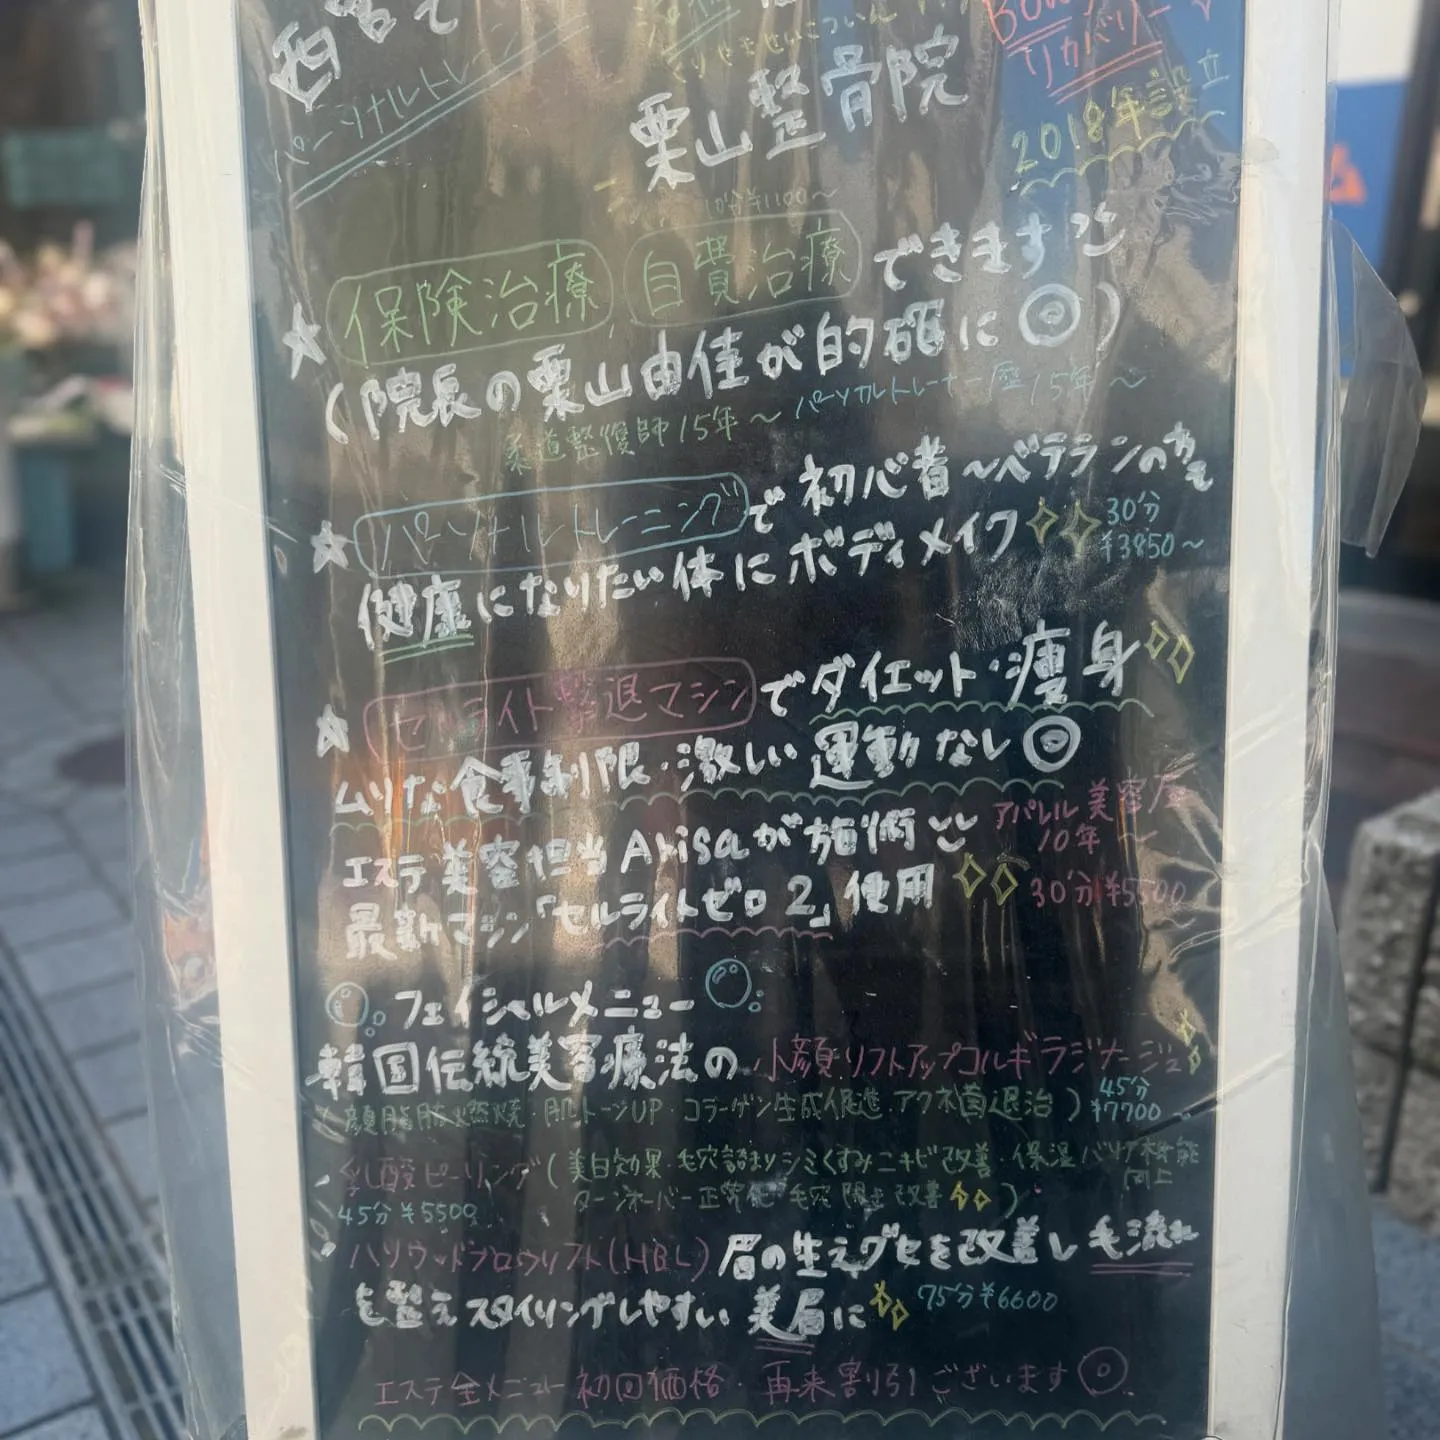 西宮で
パーソナルトレーニング
くりやませいこついん
栗山整骨院
リカバリー
2018年設立
10分¥1100〜
★保険治療、自費治療できます
(院長の栗山由佳が的確に◎)
柔道整復師15年〜 パーソナルトレーナー歴15年〜
★パーソナルトレーニングで初心者〜ベテランのかた
健康になりたい体にボディメイク 30分
¥3850〜
★セルライト撃退マシンでダイエット・痩身
ムリな食事制限・激しい運動なし◎
エステ美容担当Arisaが施術
アパレル美容
10年〜
最新マシン「セルライトゼロ2」使用 30分¥5500
フェイシャルメニュー
韓国伝統美容療法の小顔リフトアップコルギラジナージュ
(顔脂肪燃焼・肌トーンUP・コラーゲン生成促進・アクネ菌退治) 45分
¥7700
乳酸ピーリング(美白効果・毛穴詰まりシミくすみニキビ改善・保湿バリア機能
向上
45分¥5500 ターンオーバー正常化・毛穴開き改善)
ハリウッドブロウリフト(HBL)眉の生えグセを改善し毛流れ
を整えスタイリングしやすい美眉に 75分¥6600
エステ全メニュー初回価格・再来割引ございます◎